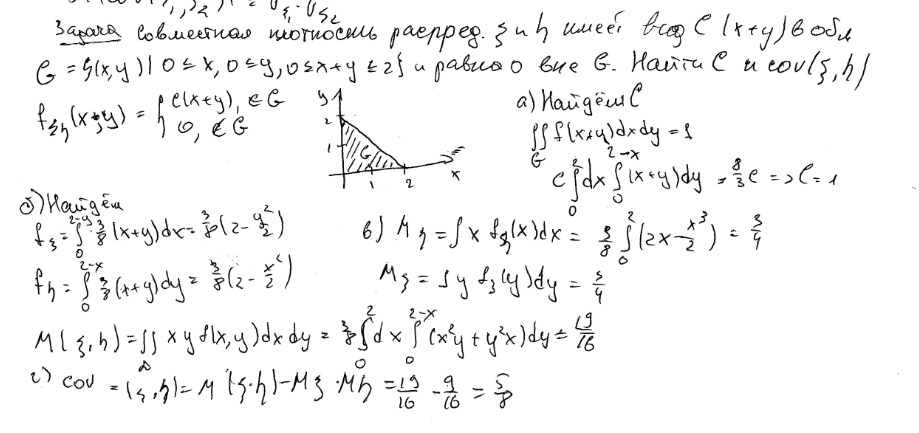 Задача Совместная плотность распред. ξ и η имеет вид C (x+y) в обл
G = {(x,y) | 0 ≤ x, 0 ≤ y, 0 ≤ x+y ≤ 2} и равна 0 вне G. Найти C и cov(ξ,η)
f_ξη(x;y) = { c(x+y), ∈ G
0, ∉ G
y
2
1
G
1 2 x
а) Найдём C
∬_G f(x+y)dxdy = 1
c ∫_0^2 dx ∫_0^{2-x} (x+y)dy = 8/3 c => C = 1
б) Найдём
f_ξ = ∫_0^{2-y} 3/8 (x+y)dx = 3/8 (2 - y²/2)
f_η = ∫_0^{2-x} 3/8 (x+y)dy = 3/8 (2 - x²/2)
в) M_η = ∫ x f_η(x)dx = 3/8 ∫_0^2 (2x - x³/2) = 3/4
M_ξ = ∫ y f_ξ(y)dy = 3/4
M(ξ,η) = ∬ xy f(x,y)dxdy = 3/8 ∫_0^2 dx ∫_0^{2-x} (x²y + y²x)dy = 19/16
г) cov = (ξ,η) = M(ξ·η) - Mξ · Mη = 19/16 - 9/16 = 5/8